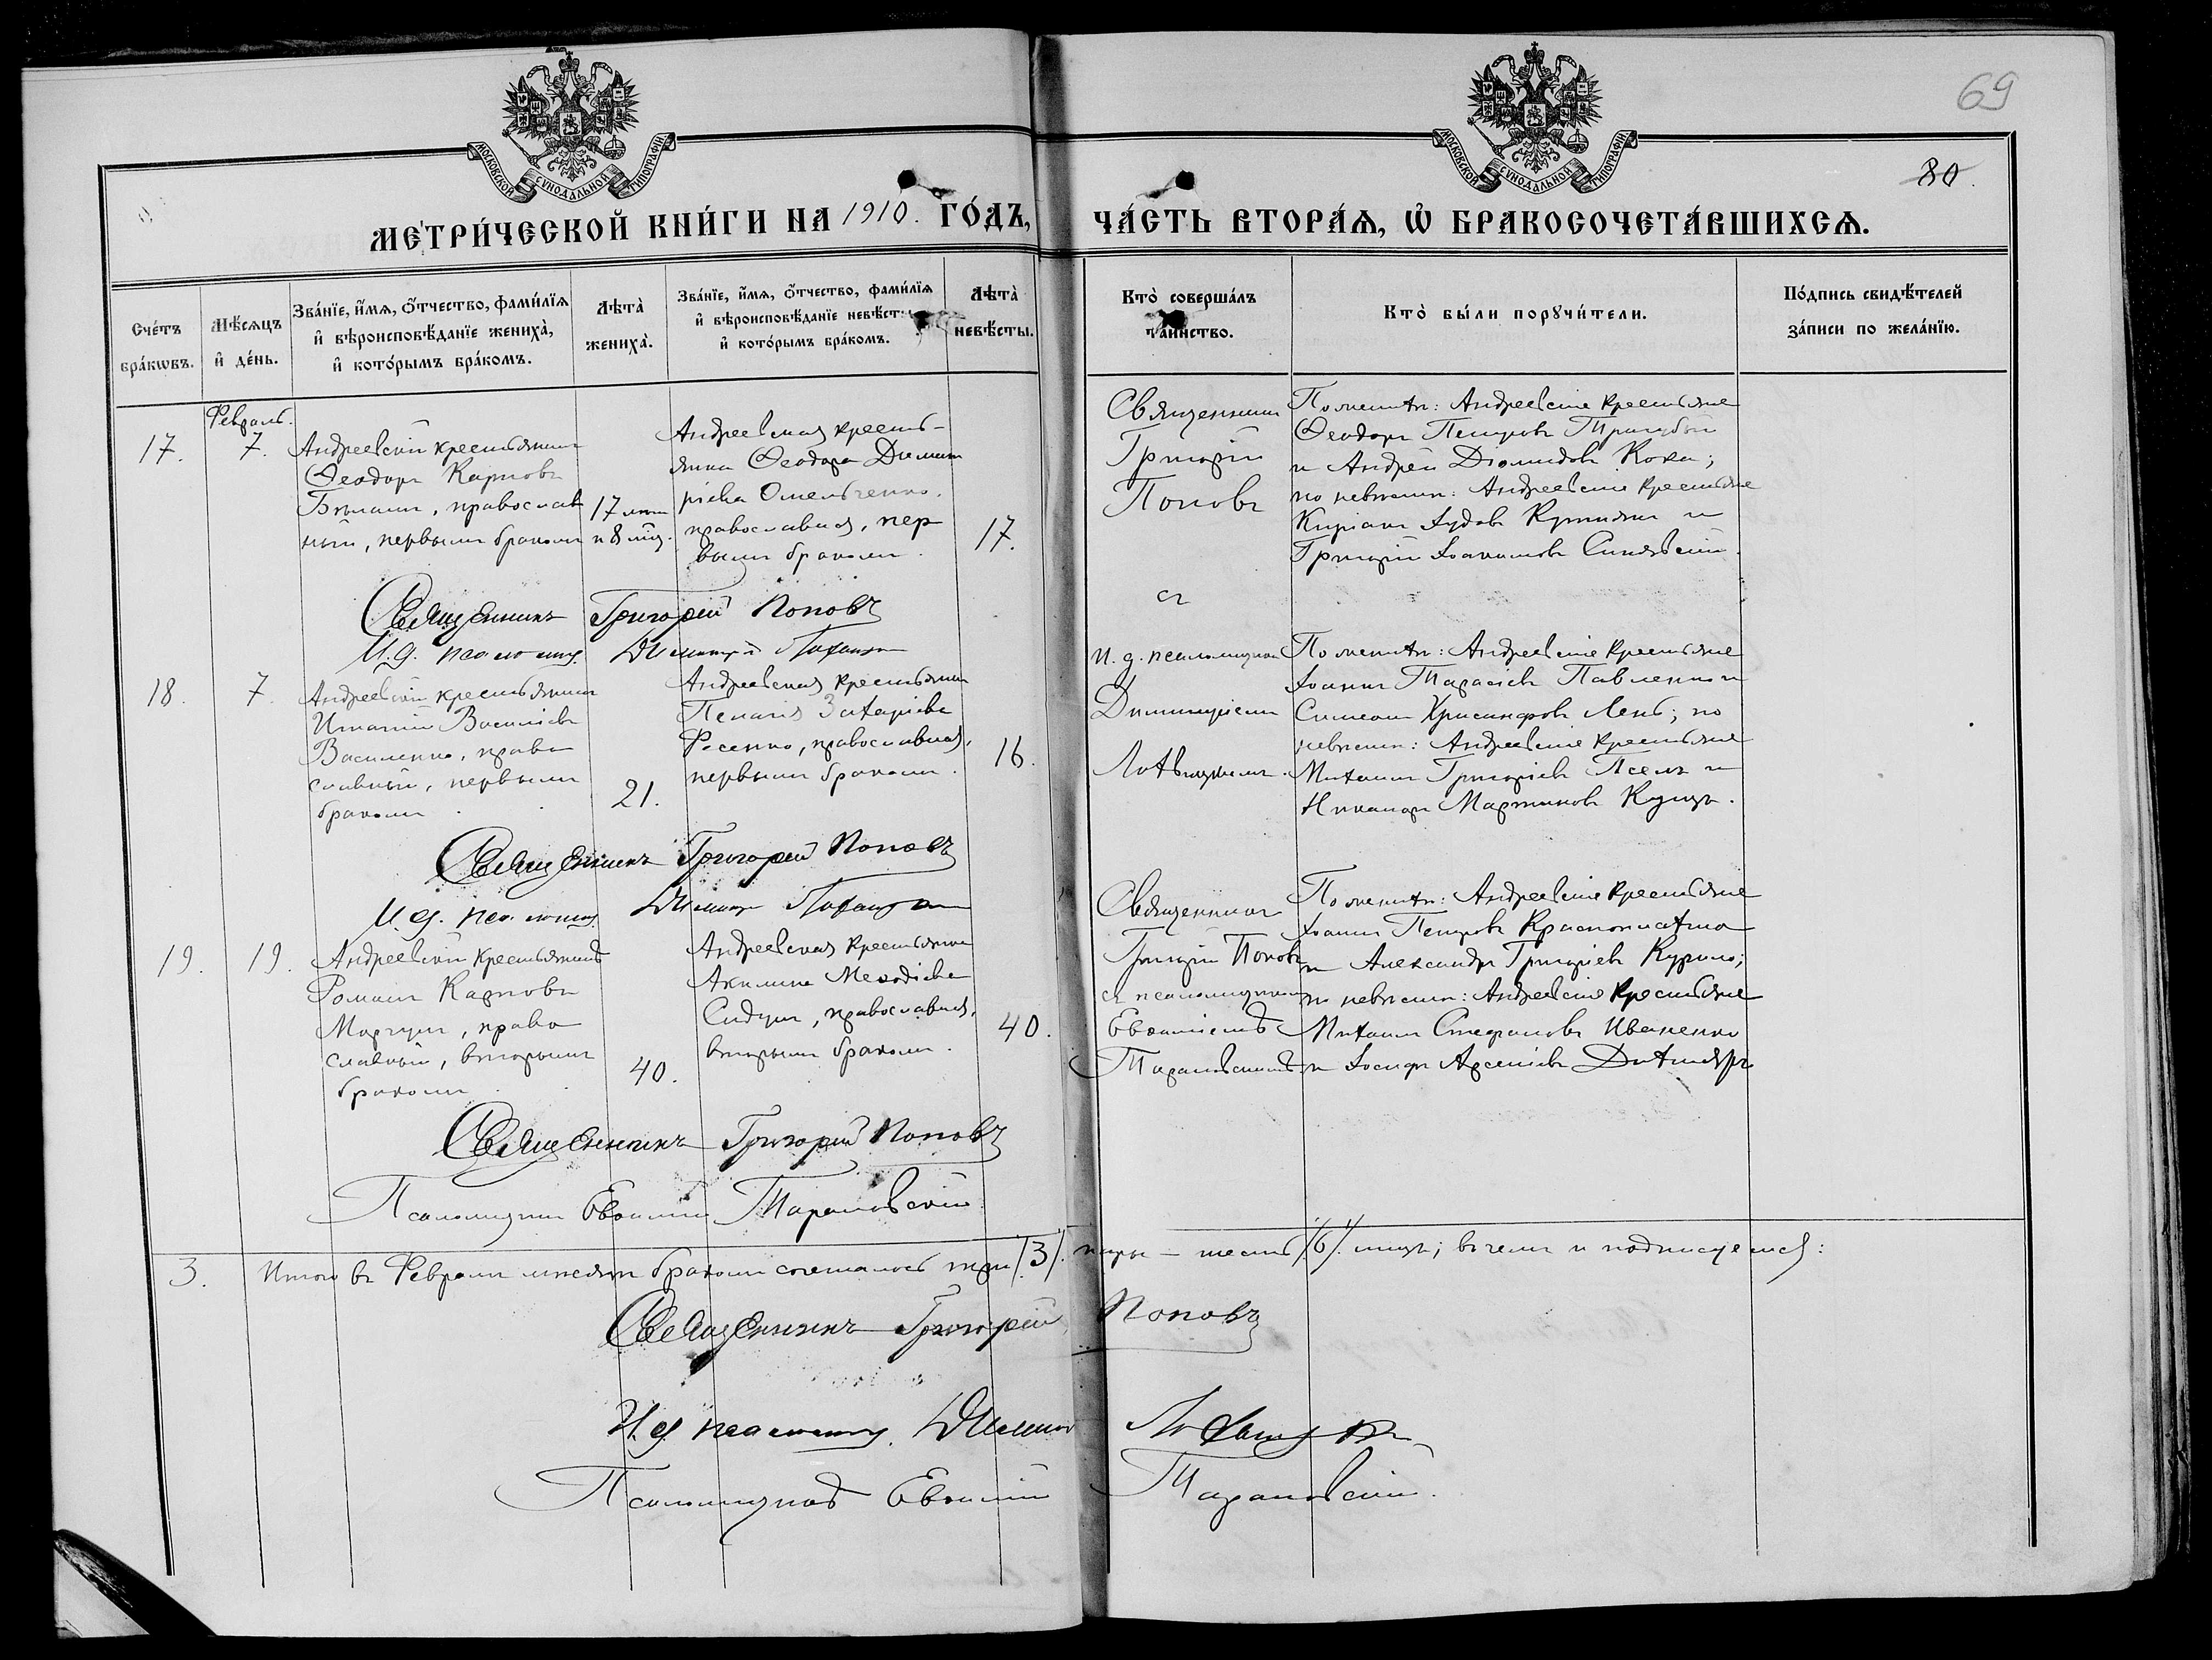 69
80.
МОСКОВСКОЙ СѴНОДАЛЬНОЙ ТИПОГРАФІИ
МОСКОВСКОЙ СѴНОДАЛЬНОЙ ТИПОГРАФІИ
МЕТРИ́ЧЕСКОЙ КНИ́ГИ НА 1910. ГО́ДЪ, ЧА́СТЬ ВТОРА́Ѧ, Ѽ БРАКОСОЧЕТА́ВШИХСѦ.
Сче́тъ бра́кѡвъ.
Мѣ́сѧцъ и҆ де́нь.
Зва́нїе, и҆́мѧ, ѻ҆́тчество, фами́лїѧ
и҆ вѣроисповѣ́данїе жениха̀,
и҆ кото́рымъ бра́комъ.
Лѣта̀ жениха̀.
Зва́нїе, и҆́мѧ, ѻ҆́тчество, фами́лїѧ
и҆ вѣроисповѣ́данїе невѣ́ст
и҆ кото́рымъ бра́комъ.
Лѣта̀ невѣ́сты.
Кто̀ соверша́лъ та́инство.
Кто̀ бы́ли порꙋчи́тели.
По́дпись свидѣ́телей
за́писи по жела́нїю.
Февраль.
17.
7.
Андреевскій крестьянинъ
Ѳеодоръ Карповъ
православ
ный, первымъ бракомъ
17 лѣтъ
и 8 мѣс.
Андреевская кресть-
янка Ѳеодора Димит
ріева Омельченко,
православная, пер
вымъ бракомъ.
17.
Священникъ
Григорій
Поповъ
съ
и. д. псаломщика
Димитріемъ
По женихѣ: Андреевскіе крестьяне
Ѳеодоръ Петровъ
и Андрей Діомидовъ Коха;
по невѣстѣ: Андреевскіе крестьяне
Кипріанъ Іудовъ и
Григорій Іоакимовъ Синявскій.
Священникъ Григорій Поповъ
И. д. псаломщ. Димитрій
18.
7.
Андреевскій крестьянинъ
Игнатій Василіевъ
Василенко, право
славный, первымъ
бракомъ
21.
Андреевская крестьянка
Пелагія Захаріева
православная,
первымъ бракомъ.
16.
По женихѣ: Андреевскіе крестьяне
Іоаннъ Тарасіевъ Павленко и
Симеонъ Хрисанфовъ Лень; по
невѣстѣ: Андреевскіе крестьяне
Михаилъ Григоріевъ Псёлъ и
Никаноръ Мартиновъ Куцъ.
Священникъ Григорій Поповъ
И. д. псаломщ. Димитр
19.
19.
Андреевскій крестьянинъ
Романъ Карповъ
право
славный, вторымъ
бракомъ
40.
Андреевская крестьянка
Акилина Меѳодіева
православная,
вторымъ бракомъ.
40.
Священникъ
Григорій Поповъ
съ псаломщикомъ
Евѳиміемъ
Тарановскимъ
По женихѣ: Андреевскіе крестьяне
Іоаннъ Петровъ
и Александръ Григоріевъ Курило;
по невѣстѣ: Андреевскіе крестьяне
Михаилъ Стефановъ Иваненко
и Іосифъ Арсеніевъ Дихтяръ
Священникъ Григорій Поповъ
Псаломщикъ Евѳимій Тарановскій
3.
Итого въ Февралѣ мѣсяцѣ бракомъ сочеталось три /3/ пары – шесть /6/ лицъ; въ чемъ и подписуемся:
Священникъ Григорій Поповъ
И. д. псаломщ. Димит
Псаломщикъ Евѳимій Тарановскій.